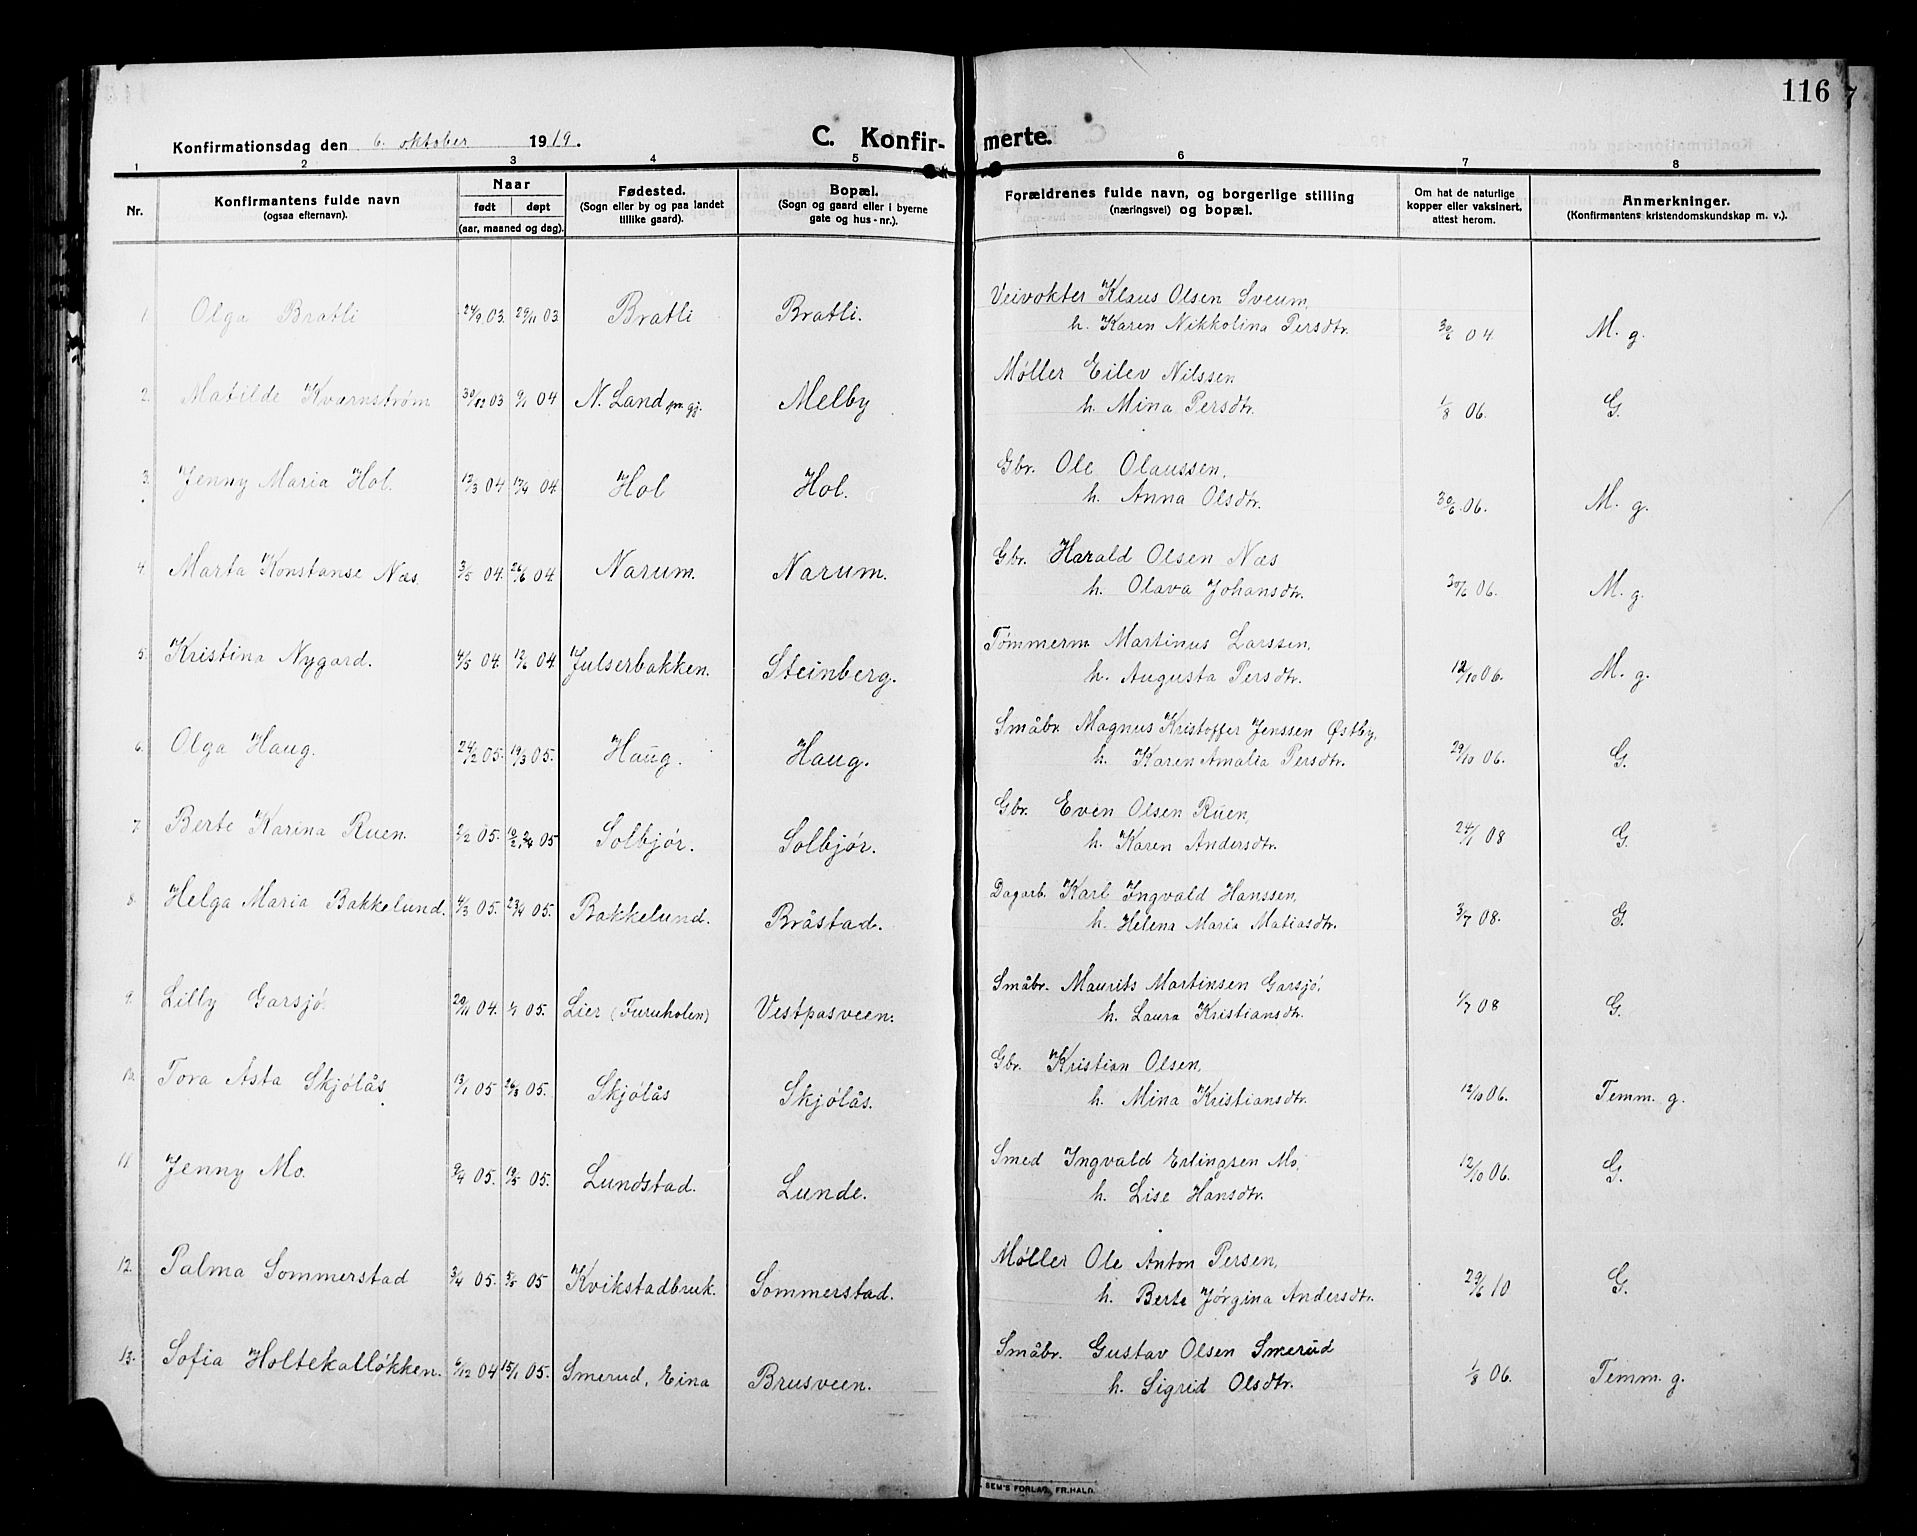 116
Konfirmationsdag den 6. oktober 1919.
C. Konfir- merte.
1 2 3 4 5 6 7 8
Nr. Konfirmantens fulde navn (ogsaa efternavn). Naar født døpt (aar, maaned og dag). Fødested. (Sogn eller by og paa landet tillike gaard). Bopæl. (Sogn og gaard eller i byerne gate og hus-nr.). Forældrenes fulde navn, og borgerlige stilling (næringsvei) og bopæl. Om hat de naturlige kopper eller vaksinert, attest herom. Anmerkninger. (Konfirmantens kristendomskundskap m. v.).
Veivokter Klaus Olsen Sveum,
1. Olga Bratli 24/9 03. 29/11 03. Bratli Bratli. h. Karen Nikkolina Persdtr. 30/6 04 M. g.
Møller Eilev Nilssen
2. Matilde Kvarnstrøm 30/12 03 9/1 04 N. Land pr. gj. Melby h. Mina Persdtr. 1/8 06. G.
Gbr. Ole Olaussen,
3. Jenny Maria Hol. 12/3 04 17/4 04. Hol Hol. h. Anna Olsdtr. 30/6 06. M. g.
Gbr. Harald Olsen Næs
4. Marta Konstanse Næs. 3/5 04. 26/6 04 Narum. Narum. h. Olava Johansdtr. 30/6 06. M. g.
Tømmerm. Martinus Larssen,
5. Kristina Nygard. 4/5 04. 12/6 04. Julserbakken. Steinberg. h. Augusta Persdtr. 12/10 06. M. g.
Småbr. Magnus Kristoffer Jenssen Østby,
6. Olga Haug. 24/2 05. 19/3 05. Haug. Haug. h. Karen Amalia Persdtr. 29/10 06. G.
Gbr. Even Olsen Ruen,
7. Berte Karina Ruen. 2/2 05. 12/2, 2/4 05 Solbjør. Solbjør. h. Karen Andersdtr. 24/1 08 G.
Dagarb. Karl Ingvald Hanssen,
8. Helga Maria Bakkelund. 4/3 05. 23/4 05. Bakkelund. Bråstad. h. Helena Maria Matiasdtr. 3/7 08. G.
Småbr. Maurits Martinsen Garsjø,
9. Lilly Garsjø. 29/11 04. 1/1 05. Lier (Furuholen) Vestpasveen. h. Laura Kristiansdtr. 1/7 08 G.
Gbr. Kristian Olsen,
10. Tora Asta Skjølås 13/1 05 26/3 05. Skjølås Skjølås. h. Mina Kristiansdtr. 12/10 06. Temm. g.
Smed Ingvald Erlingsen Mo,
11 Jenny Mo. 9/4 05. 19/5 05. Lundstad. Lunde. h. Lise Hansdtr. 12/10 06. G.
Møller Ole Anton Persen,
12. Palma Sommerstad 3/4 05. 5/5 05 Kvikstadbruk. Sommerstad. h. Berte Jørgina Andersdtr. 29/6 10 G.
Småbr. Gustav Olsen Smerud
13. Sofia Holtekalløkken. 6/12 04 15/1 05. Smerud, Eina Brusveen. h. Sigrid Olsdtr. 1/8 06. Temm. g.
SEM'S FORLAG, FR.HALD.